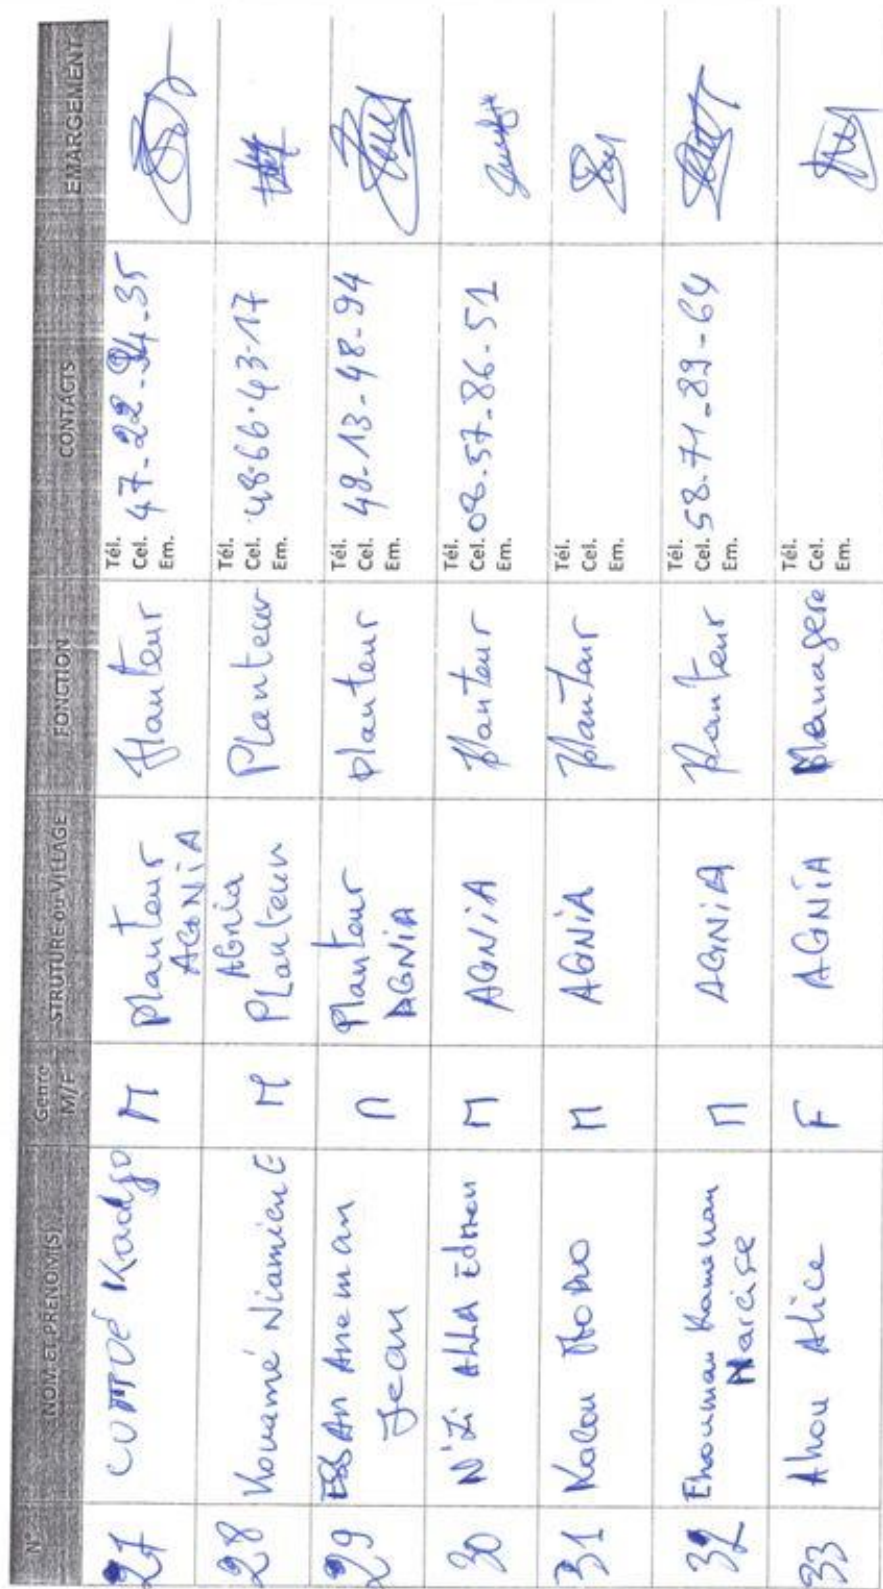 N° NOM ET PRENOM(S) Genre M/F STRUTURE OU VILLAGE FONCTION CONTACTS EMARGEMENT
27 Kadjo M Planteur AGNiA Planteur Tél. Cel. 47-22-94-35 Em.
28 Kouamé Niamien G M AGnia Planteur Planteur Tél. Cel. 48-66-43-17 Em.
29 ESSAn Aneman Jean M Planteur AGNiA planteur Tél. Cel. 48-13-48-94 Em.
30 N'Zi ALLA M AGNiA planteur Tél. Cel. 08-57-86-51 Em.
31 Kalou M AGNiA planteur Tél. Cel. Em.
32 Ehouman Kamenan Narcisse M AGNiA planteur Tél. Cel. 58-71-89-64 Em.
33 Ahou Alice F AGNiA Menagere Tél. Cel. Em.